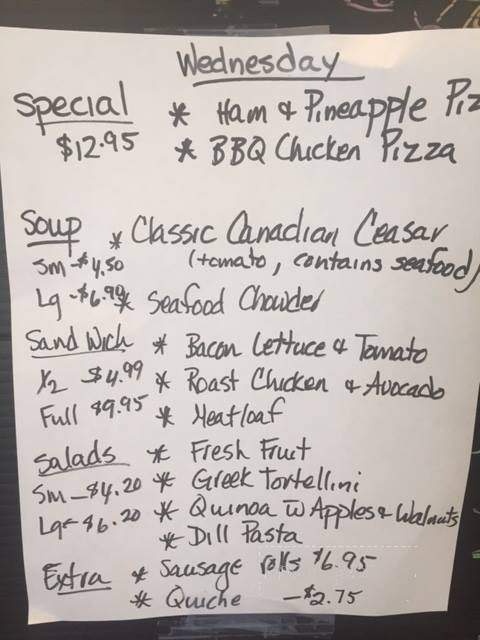 Wednesday
Special * Ham & Pineapple Piz
$12.95 * BBQ Chicken Pizza
Soup * Classic Canadian Ceasar
Sm - $4.50 (tomato, contains seafood)
Lg - $6.99 * Seafood Chowder
Sandwich * Bacon Lettuce & Tomato
1/2 $4.99 * Roast Chicken & Avocado
Full $9.95 * Meatloaf
Salads * Fresh Fruit
Sm - $4.20 * Greek Tortellini
Lg - $6.20 * Quinoa w Apples & Walnuts
* Dill Pasta
Extra * Sausage rolls $6.95
* Quiche - $2.75